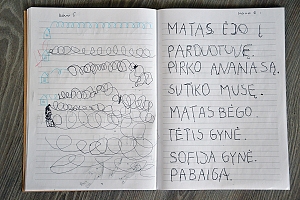 MATAS ĖJO Į
PARDUOTUVĘ.
PIRKO ANANASĄ.
SUTIKO MUSĘ.
MATAS BĖGO.
TĖTIS GYNĖ.
SOFIJA GYNĖ.
PABAIGA.